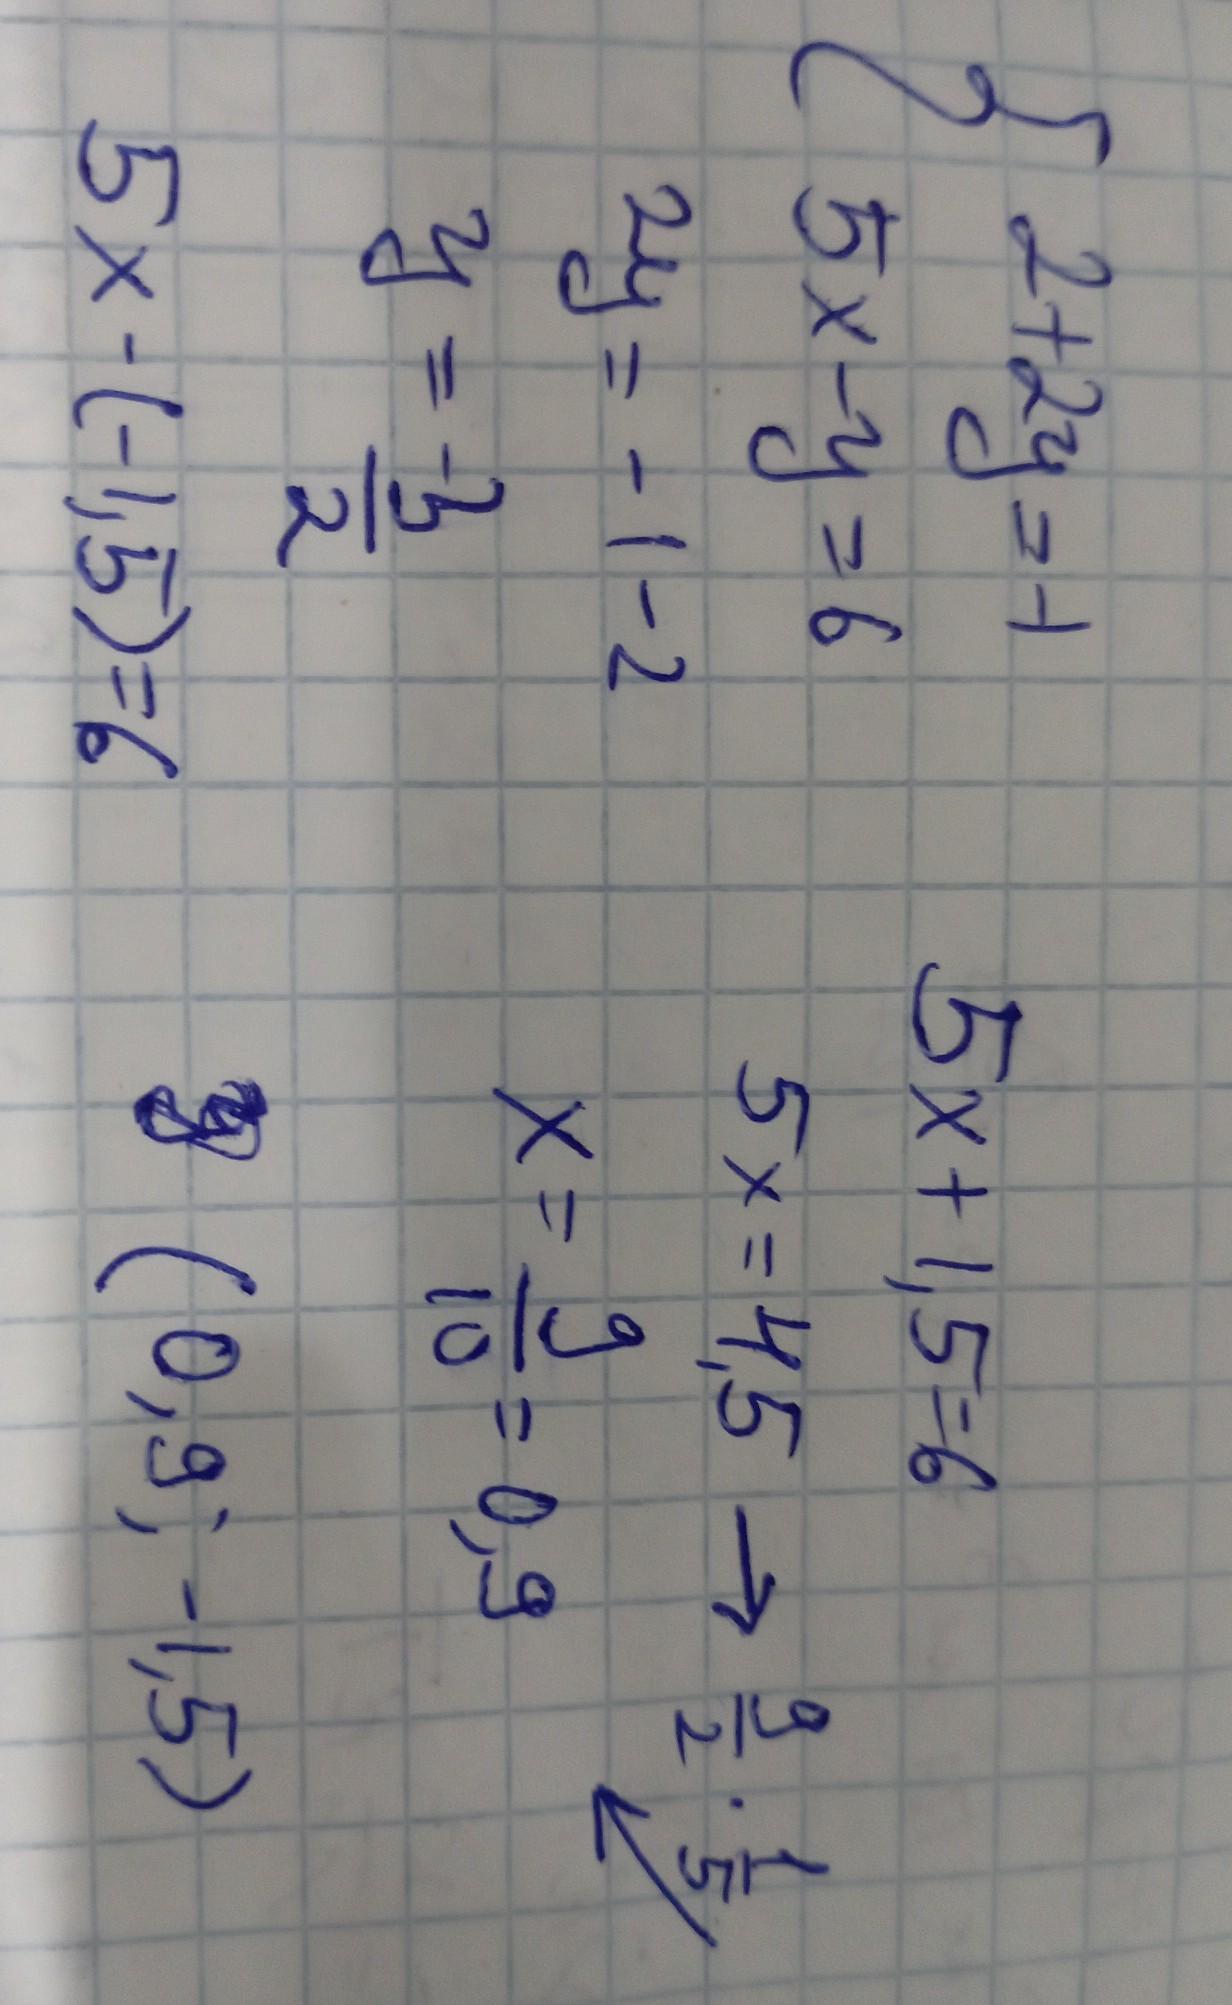 { 2+2y=-1
5x-y=6
2y=-1-2
y=-3/2
5x-(-1,5)=6
5x+1,5=6
5x=4,5 → 9/2 · 1/5
x=9/10=0,9
(0,9; -1,5)